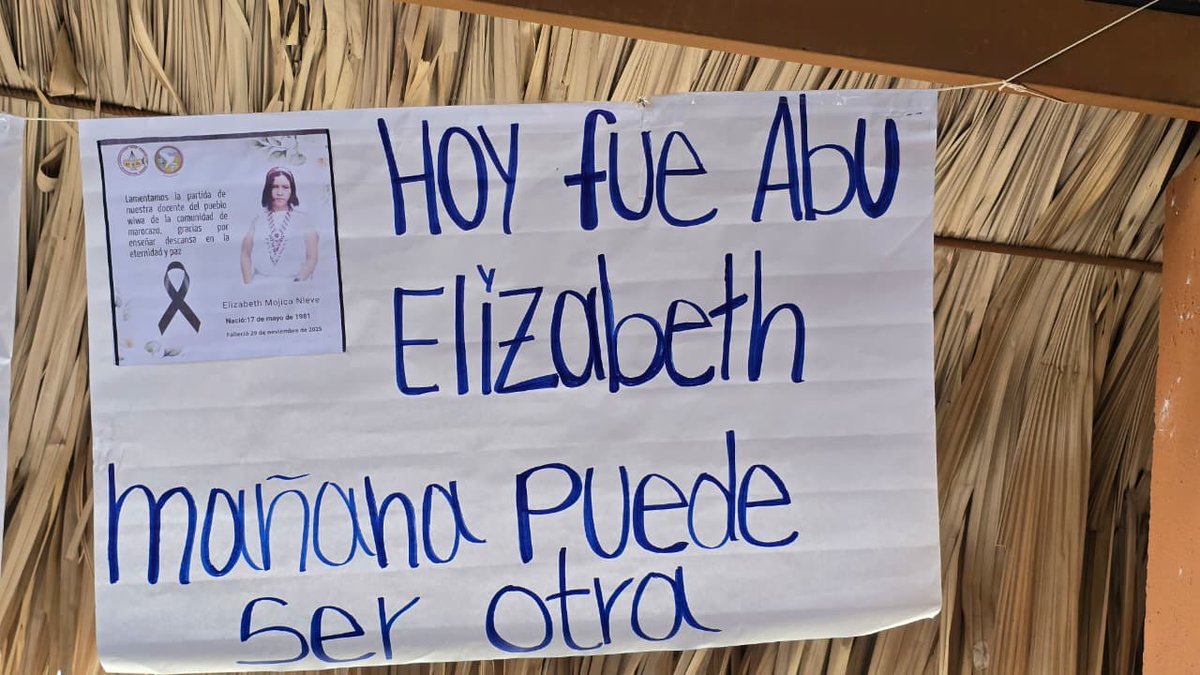 Lamentamos la partida de
nuestra docente del pueblo
wiwa de la comunidad de
marocazo, gracias por
enseñar descansa en la
eternidad y paz
Elizabeth Mojica Nieve
Nació:17 de mayo de 1981
Falleció 29 de noviembre de 2025
HOY fue Abu
Elizabeth
mañana puede
ser otra